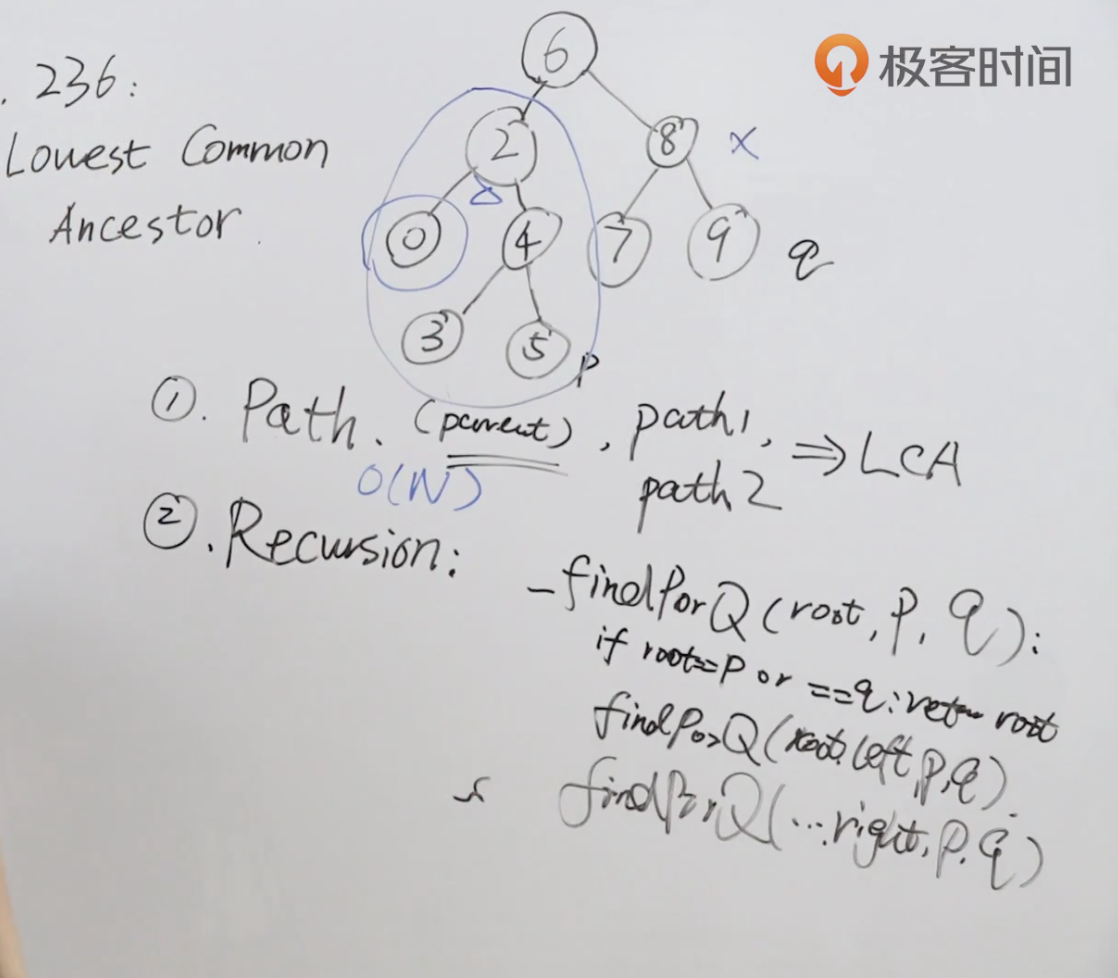 极客时间
. 236:
Lowest Common
Ancestor.
6
2 8 x
0 4 7 9 q
3 5 p
①. Path. (parent), path1, ⇒ LCA
O(N) path2
②. Recursion:
_findPorQ(root, p, q):
if root==p or ==q: return root
findPorQ(root.left, p, q).
findPorQ(...right, p, q)